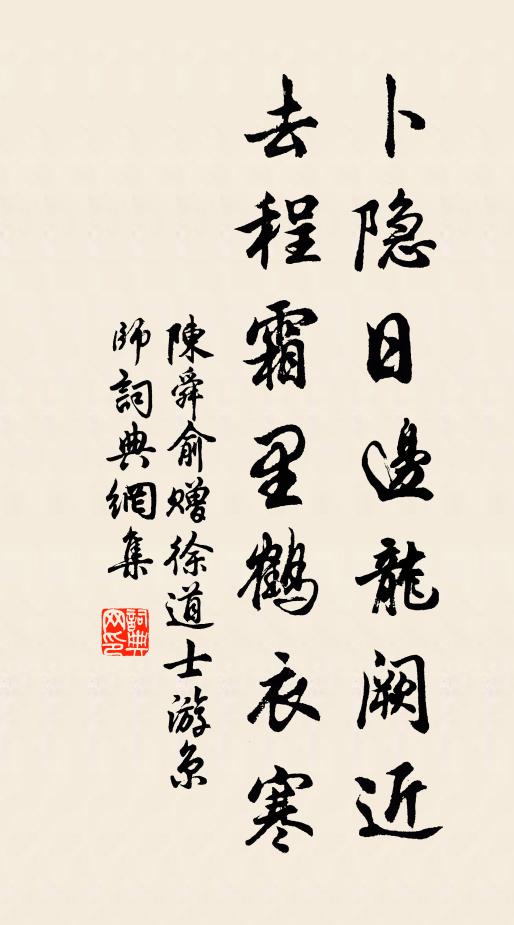 卜隐日邊龍阙近
去程霜里鶴衣寒
陳舜俞赠徐道士游京
師詞典網集
詞典
网印